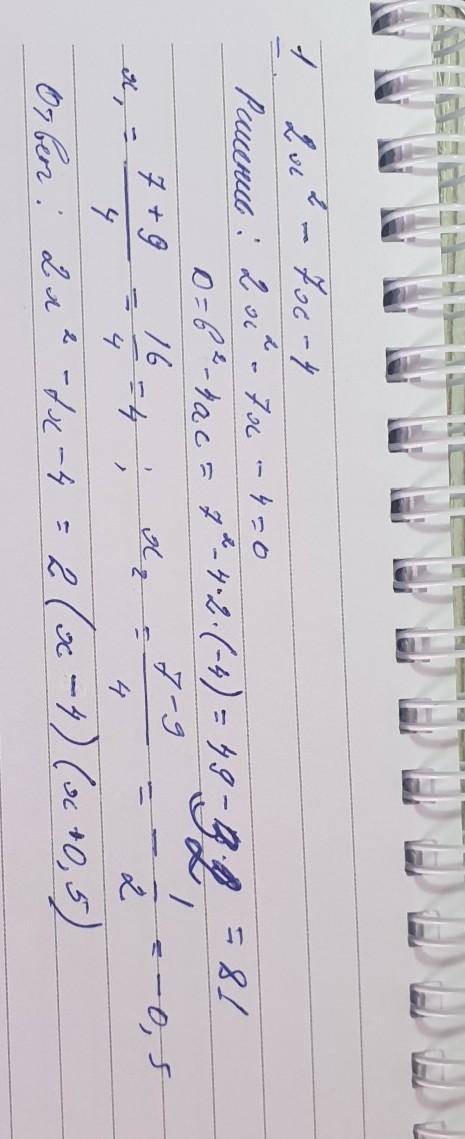 1. 2x² - 7x - 4
Решение: 2x² - 7x - 4 = 0
D = b² - 4ac = 7² - 4·2·(-4) = 49 - = 81
x₁ = (7 + 9)/4 = 16/4 = 4; x₂ = (7 - 9)/4 = -1/2 = -0,5
Ответ: 2x² - 7x - 4 = 2(x - 4)(x + 0,5)